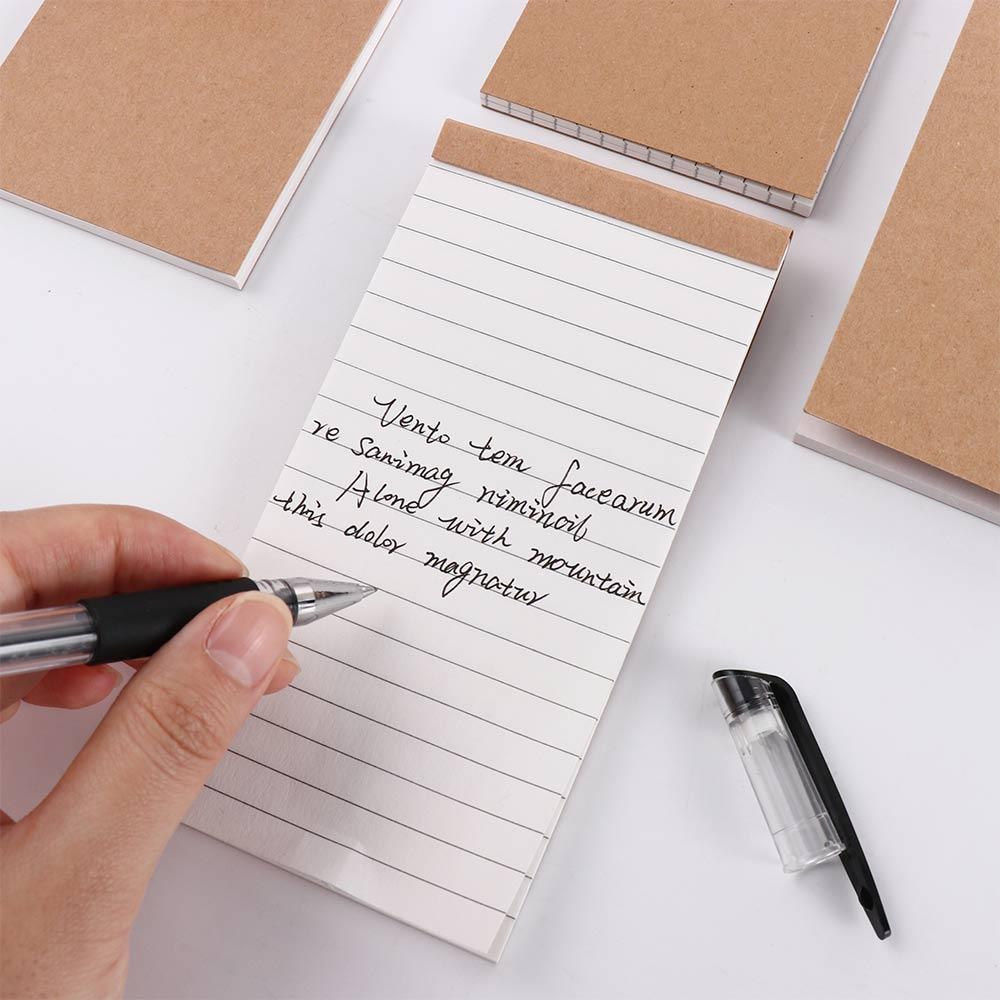 Vento tem facearum
re sanimag niminoil
Alone with mountain
this dolor magnatur